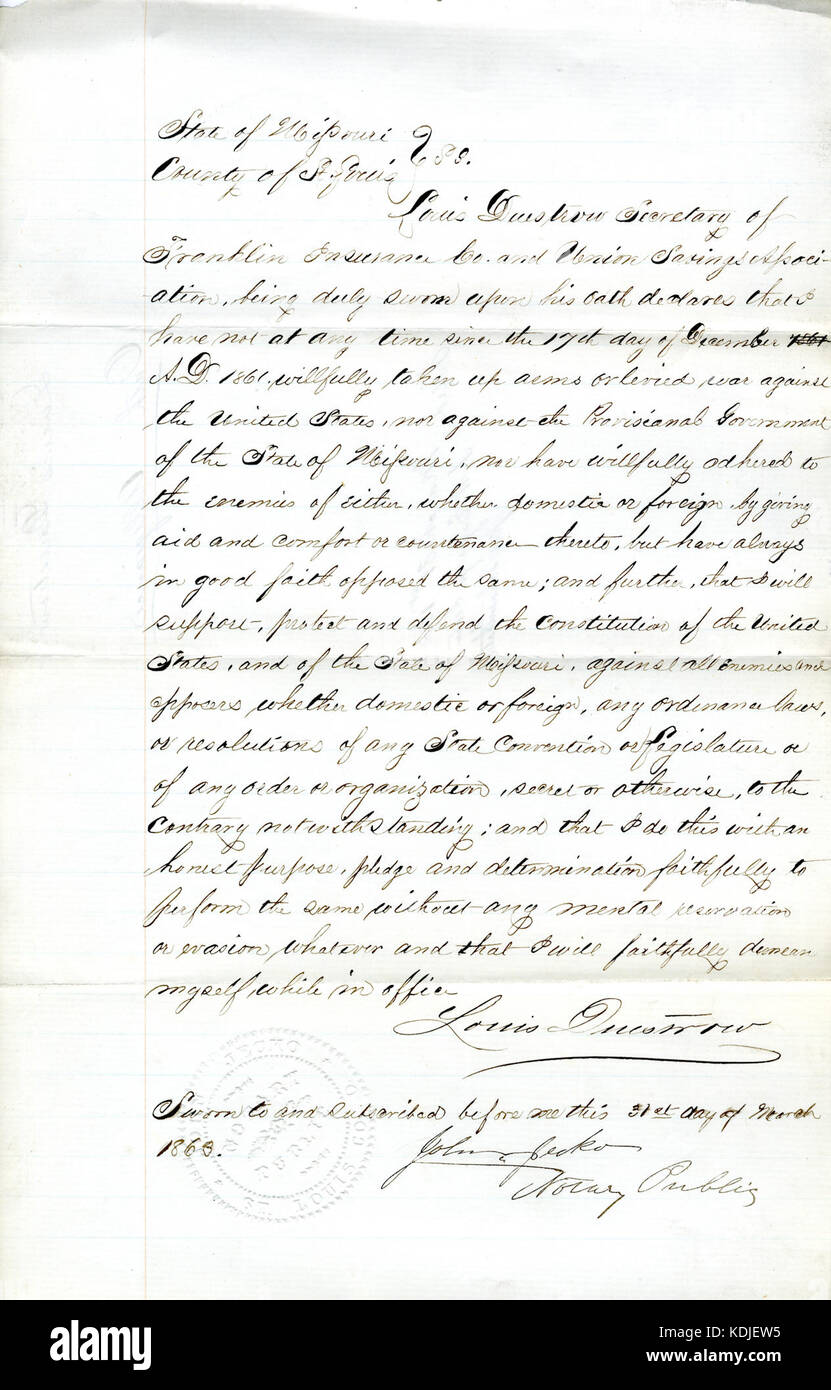 State of Missouri } S.S.
County of St. Louis
Louis Duestrow Secretary of
Franklin Insurance Co. and Union Savings Associ-
ation, being duly sworn upon his oath declares that I
have not at any time since the 17th day of December 1861
A.D. 1861, willfully taken up arms or levied war against
the United States, nor against the Provisional Government
of the State of Missouri, nor have willfully adhered to
the enemies of either, whether domestic or foreign, by giving
aid and comfort or countenance thereto, but have always
in good faith opposed the same; and further, that I will
support, protect and defend the Constitution of the United
States, and of the State of Missouri, against all enemies and
opposers whether domestic or foreign, any ordinance laws,
or resolutions of any State Convention or Legislature or
of any order or organization, secret or otherwise, to the
contrary notwithstanding; and that I do this with an
honest purpose, pledge and determination faithfully to
perform the same without any mental reservation
or evasion whatever and that I will faithfully demean
myself while in office
Louis Duestrow
Sworn to and subscribed before me this 31st day of March
1863.
John Jecko
Notary Public
JECKO
ST. LOUIS
alamy
a
Image ID: KDJEW5
www.alamy.com